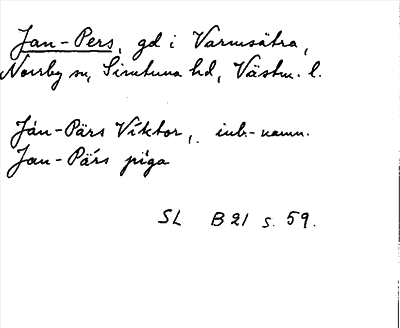 Jan-Pers, gd i Varmsätra,
Norrby sn, Simtuna hd, Västm. l.
Ján-Pärs Víktor, inb.-namn.
Jan-Pä́rs píga
SL B 21 s. 59.